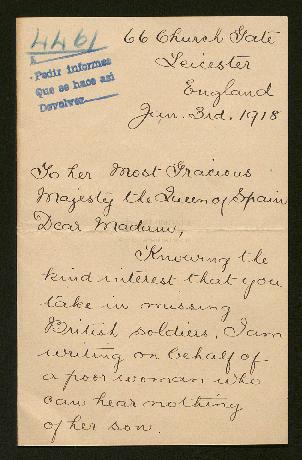 4461
Pedir informes
Que se hace así
Devolver
66 Church Gate
Leicester
England
Jun. 3rd. 1918
To her Most Gracious
Majesty the Queen of Spain
Dear Madam,
Knowing the
kind interest that you
take in missing
British soldiers, I am
writing on behalf of
a poor woman who
can hear nothing
of her son.